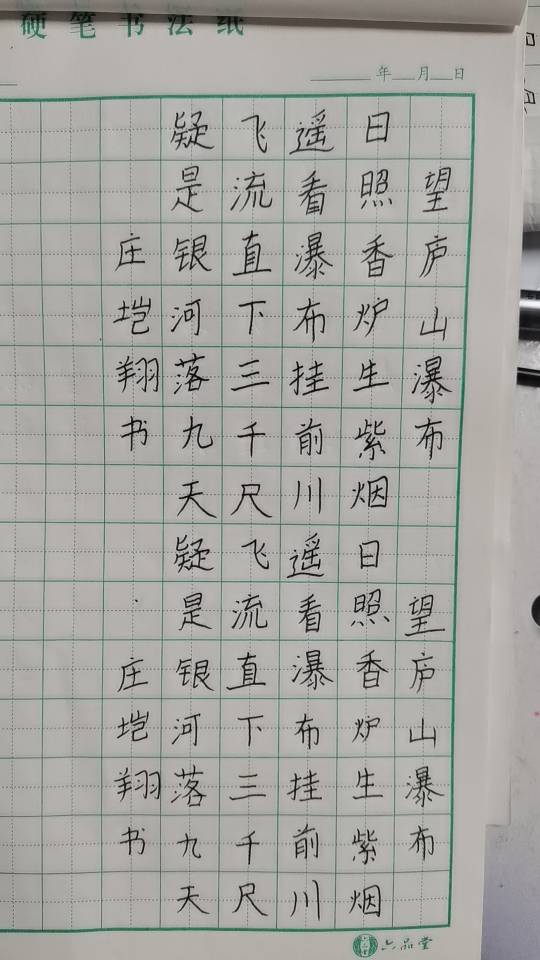 硬笔书法纸
年 月 日
望庐山瀑布
日照香炉生紫烟
遥看瀑布挂前川
飞流直下三千尺
疑是银河落九天
庄垲翔书
望庐山瀑布
日照香炉生紫烟
遥看瀑布挂前川
飞流直下三千尺
疑是银河落九天
庄垲翔书
六品堂